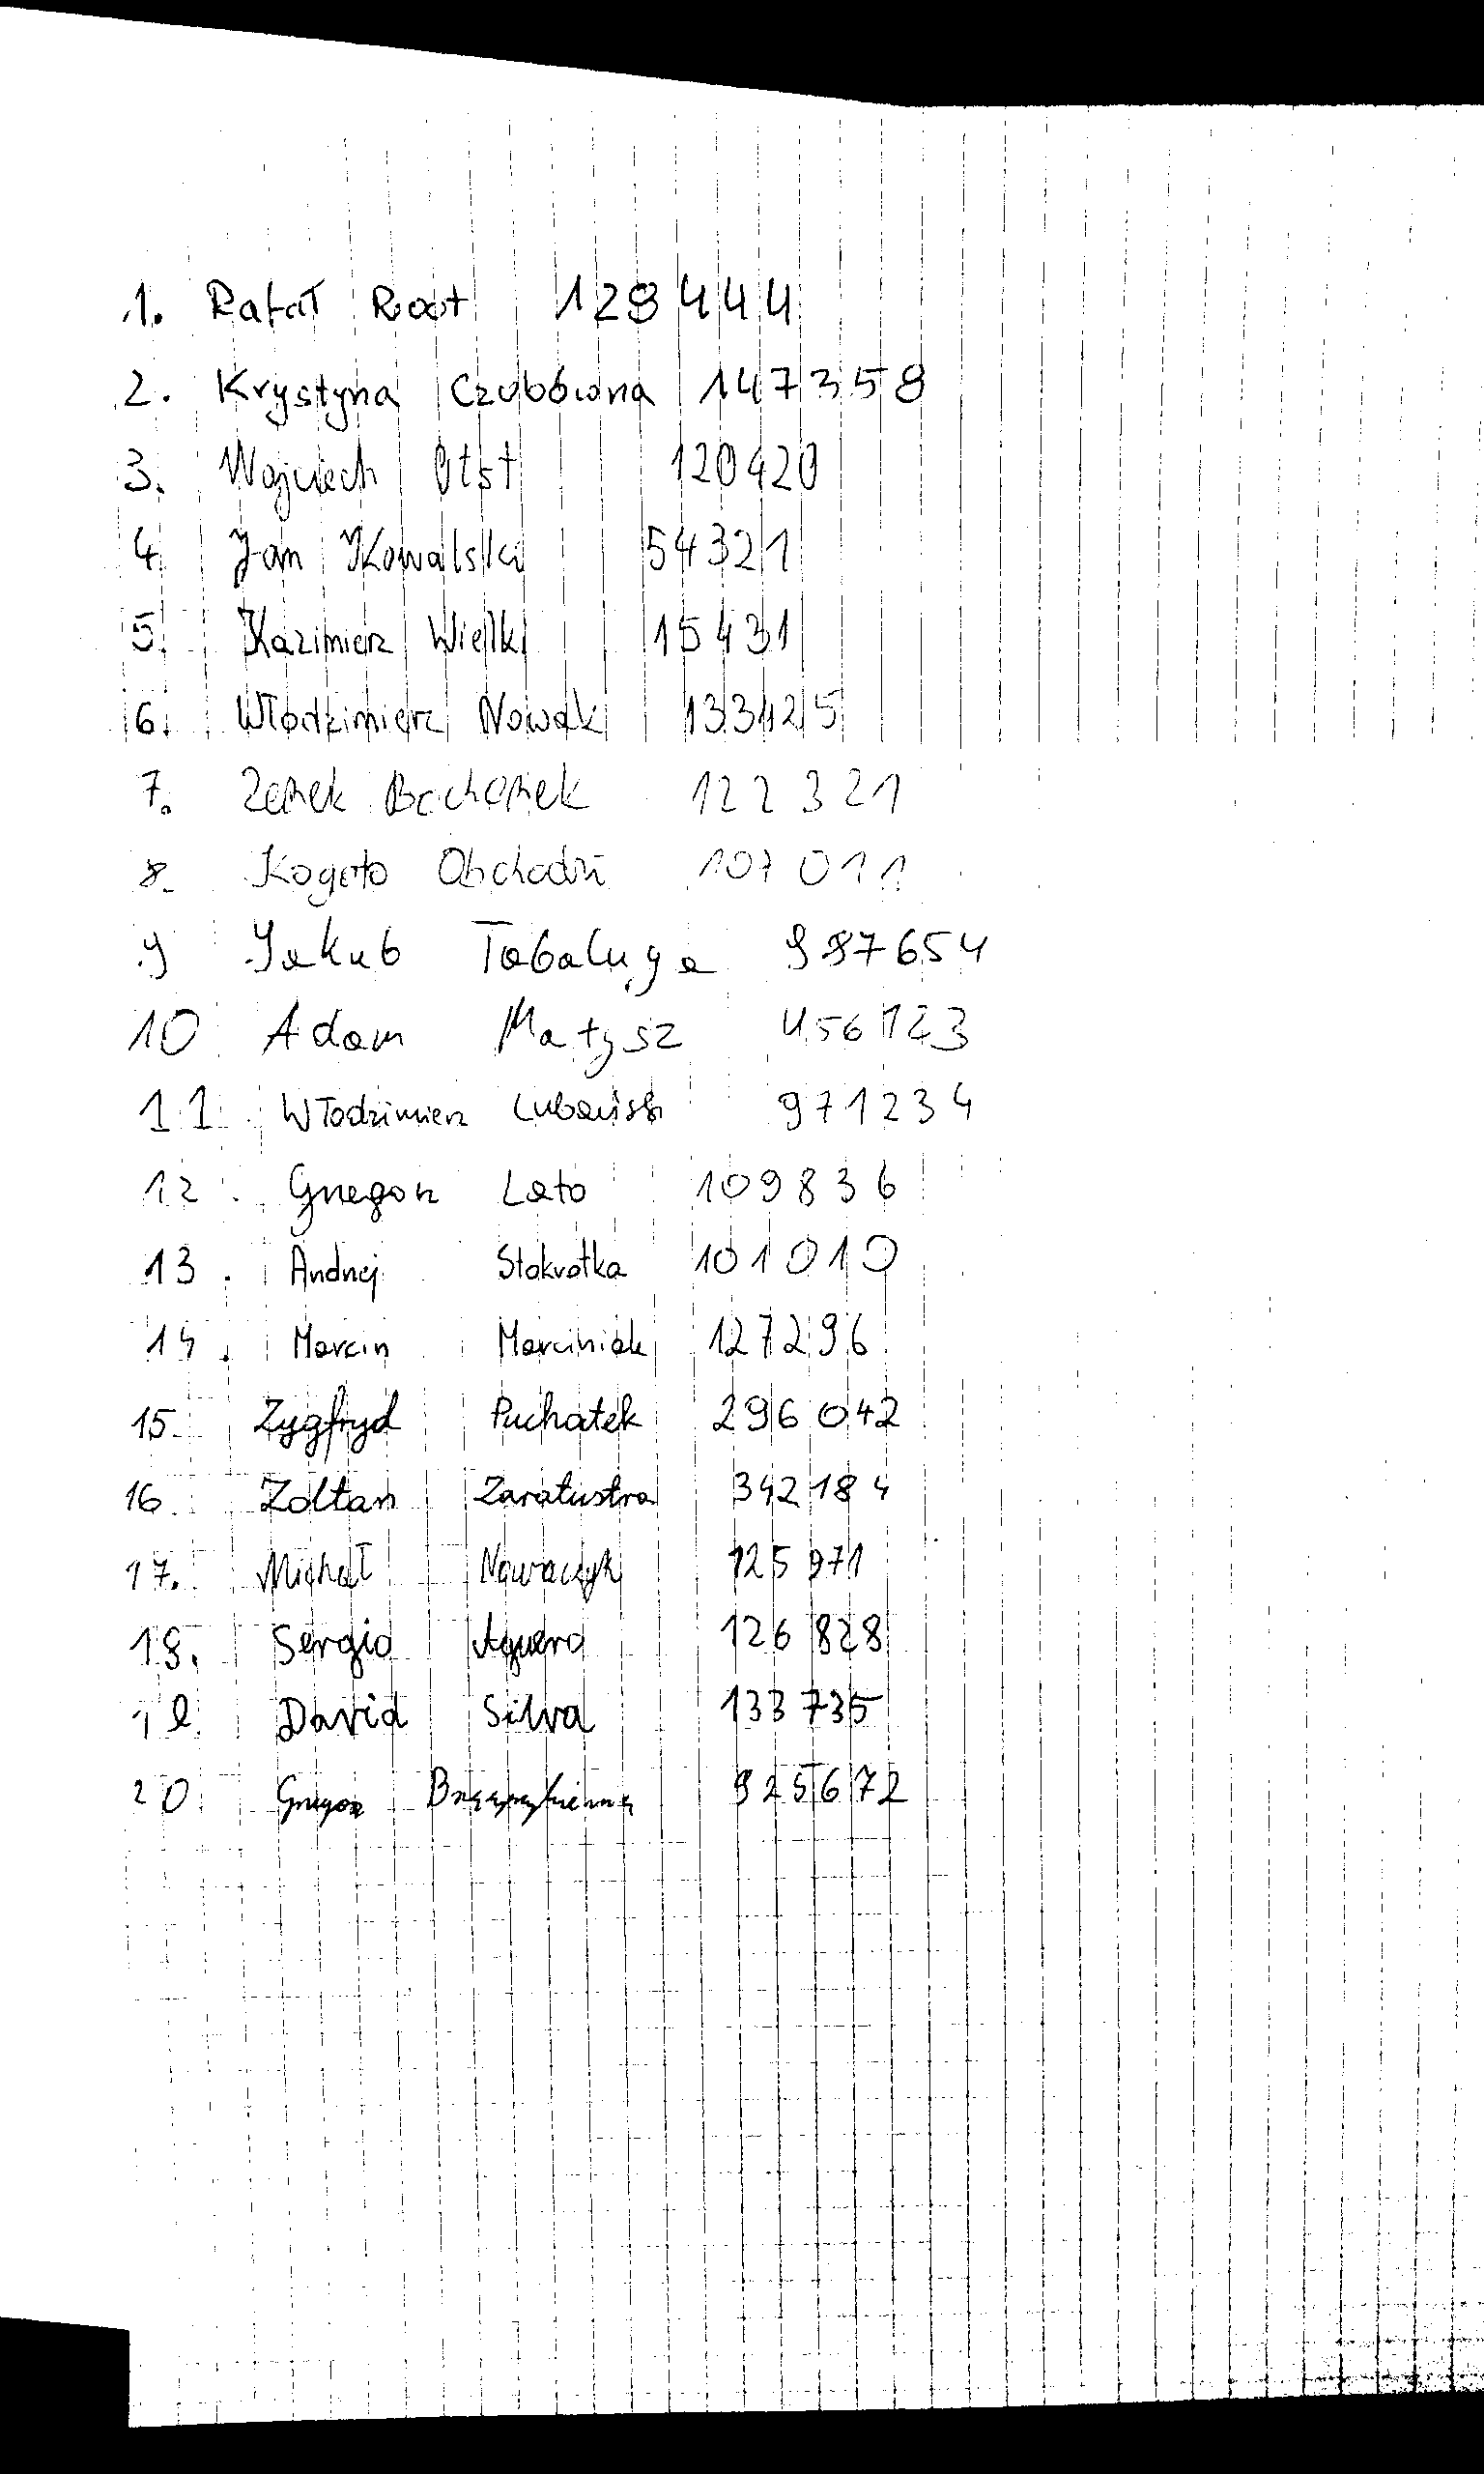 1. Rafał Root 128444
2. Krystyna Czubówna 147358
3. Wojciech 120420
4 Jan Kowalski 54321
5. Kazimierz Wielki 15431
6. Włodzimierz Nowak 133425
7. Zenek Bochenek 122321
8. Kogoto Obchodzi 107011
9 Jakub Tabaluga 987654
10 Adam Małysz 456123
11 Włodzimierz Lubański 971234
12. Grzegorz Lato 109836
13. Andrzej Stokrotka 101010
14. Marcin Marciniak 127296
15. Zygfryd Puchatek 296042
16. Zoltan Zaratustra 342184
17. Michał Nowaczyk 125971
18. Sergio Aguero 126828
19. David Silva 133735
20. Grzegorz 925672